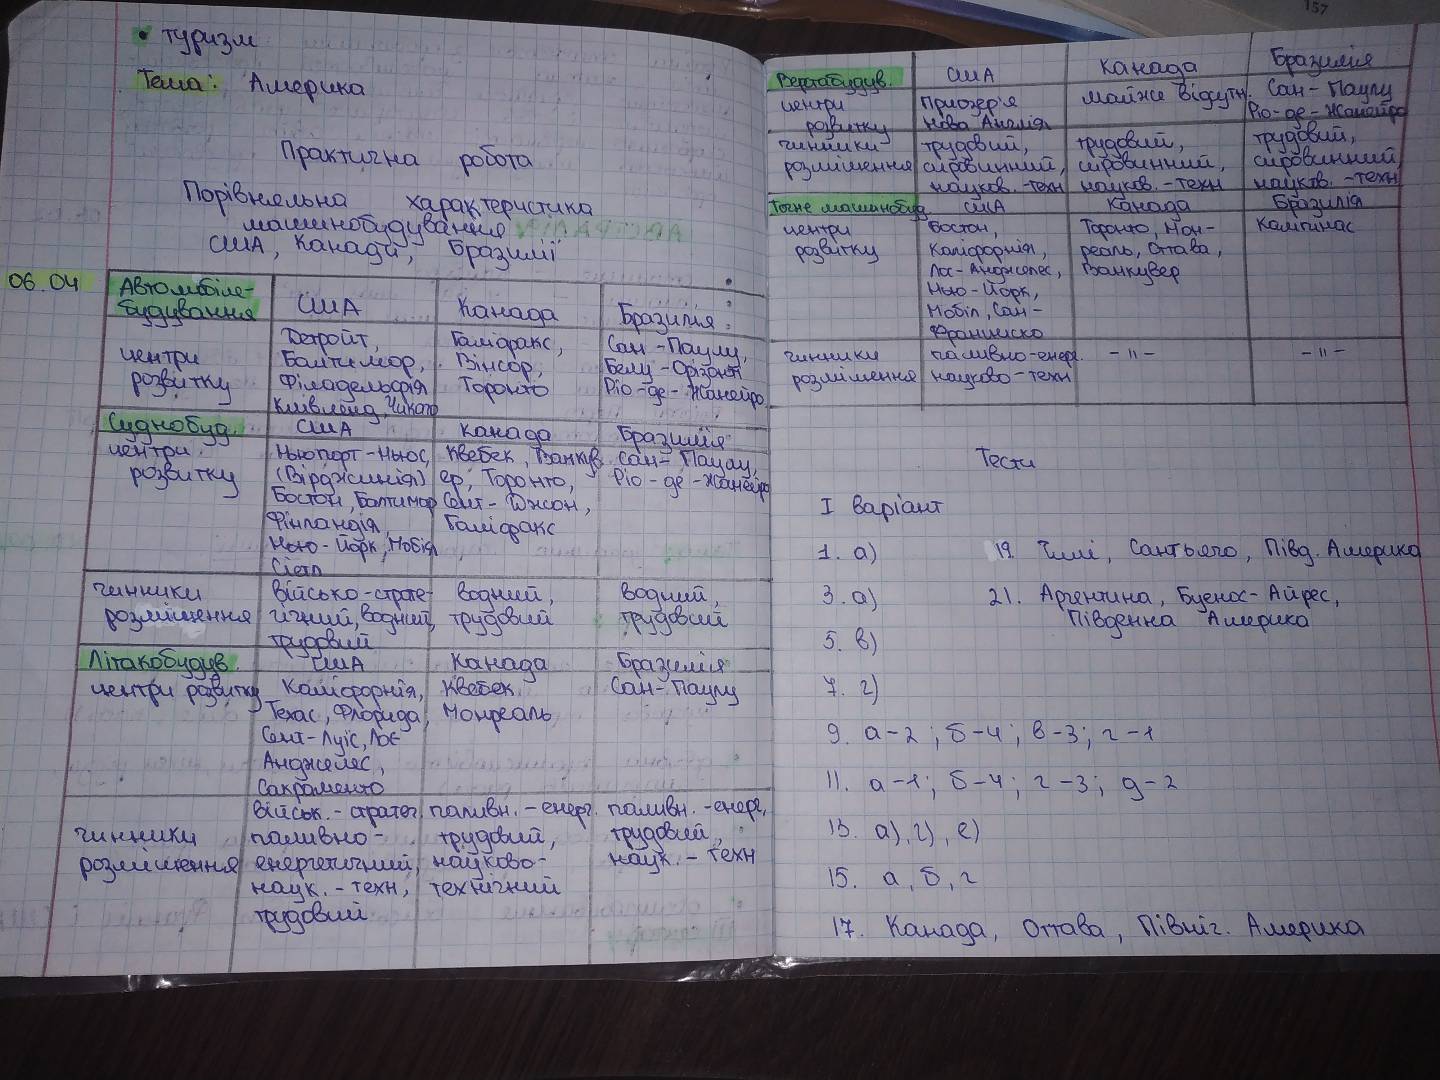 • туризм
Тема: Америка
Практична робота
Порівняльна характеристика
машинобудування
США, Канади, Бразилії
06.04
Автомобіле-
будування США Канада Бразилія
центри
розвитку
Детройт,
Балтимор,
Філадельфія
Клівленд, Чикаго
Галіфакс,
Вінсор,
Торонто
Сан-Паулу,
Белу-Орізонті
Ріо-де-Жанейро
Суднобуд. США Канада Бразилія
центри
розвитку
Ньюпорт-Ньюс,
(Вірджинія)
Бостон, Балтимор
Фінландія,
Нью-Йорк, Мобіл
Сіетл
Квебек, Ванкув
ер, Торонто,
Сент-Джон,
Галіфакс
Сан-Паулу,
Ріо-де-Жанейро
чинники
розміщення
військо-страте-
гічний, водний,
трудовий
водний,
трудовий
водний,
трудовий
Літакобудув. США Канада Бразилія
центри розвитку
Каліфорнія,
Техас, Флорида,
Сент-Луіс, Лос
Анджелес,
Сакраменто
Квебек
Монреаль
Сан-Паулу
чинники
розміщення
військ.-стратег.
паливно-
енергетичний,
наук.-техн,
трудовий
паливн.-енерг.
трудовий,
науково-
технічний
паливн.-енерг,
трудовий,
наук.-техн
157
Верстабудув. США Канада Бразилія
центри
розвитку
Приозер'я
Нова Англія
майже відсутн.
Сан-Паулу
Ріо-де-Жанейро
чинники
розміщення
трудовий,
сировинний,
науков.-техн
трудовий,
сировинний,
науков.-техн
трудовий,
сировинний,
науков.-техн
Точне машинобуд США Канада Бразилія
центри
розвитку
Бостон,
Каліфорнія,
Лос-Анджелес,
Нью-Йорк,
Мобіл, Сан-
Франциско
Торонто, Мон-
реаль, Оттава,
Ванкувер
Кампінас
чинники
розміщення
паливно-енерг.
науково-техн
-"-
-"-
Тести
I варіант
1. а)
3. а)
5. в)
7. г)
9. а-2; б-4; в-3; г-1
11. а-1; б-4; г-3; д-2
13. а), г), е)
15. а, б, г
17. Канада, Оттава, Північ. Америка
19. Чилі, Сантьяго, Півд. Америка
21. Аргентина, Буенос-Айрес,
Південна Америка